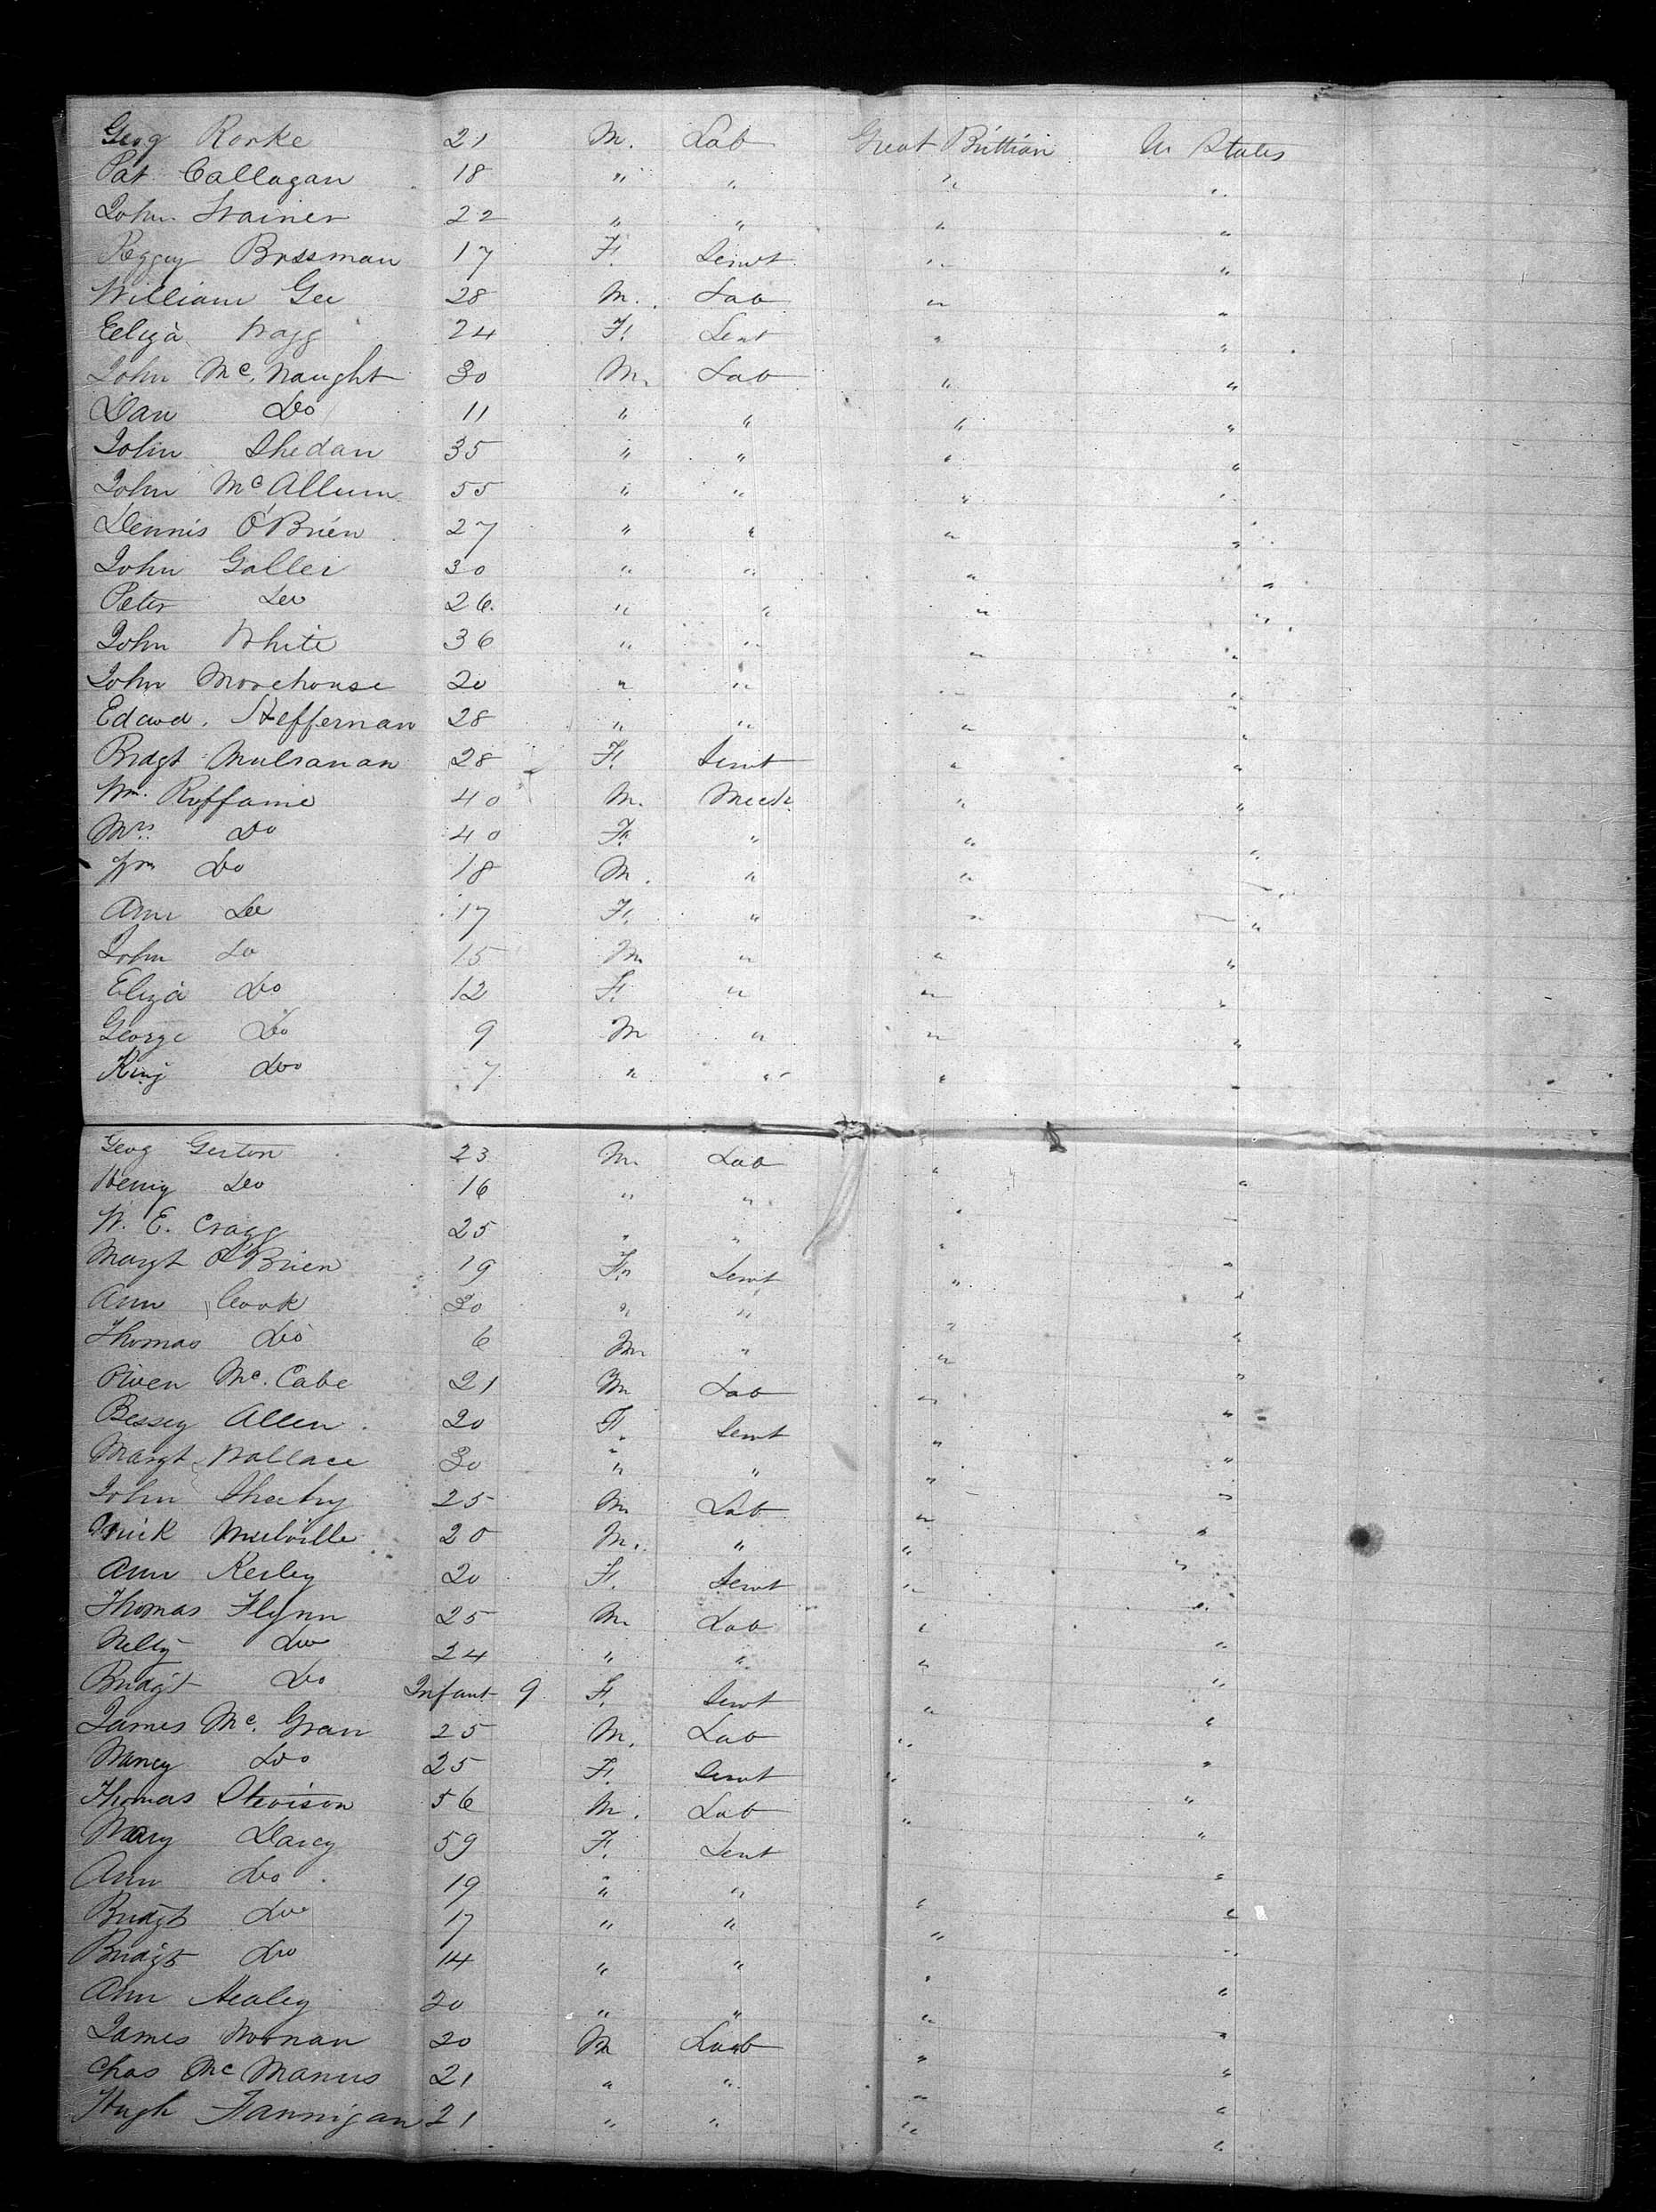 Geog Rorke 21 M. Lab Great Brittian U States
Pat Callagan 18 " " " "
John Trainer 22 " " " "
Peggy Brssman 17 F. Servt " "
William Gee 28 M. Lab " "
Eeliza Wagg 24 F. Sent " "
John Mc. Naught 30 M. Lab " "
Dan Do 11 " " " "
John Shedan 35 " " " "
John McAllum 55 " " " "
Dennis O'Brien 27 " " " "
John Galler 30 " " " "
Peter Do 26. " " " "
John White 36 " " " "
John Morehouse 20 " " " "
Edawd. Heffernan 28 " " " "
Bridgt Mulranan 28 F. Servt " "
Wm. Roffanie 40 M. Mech. " "
Mrs. Do 40 F. " " "
Wm Do 18 M. " " "
Ann Do 17 F. " " "
John Do 15 M " " "
Eliza Do 12 F. " " "
George Do 9 M " " "
King Do 7 " " " "
Geog Gerton 23 M. Lab " "
Henry Do 16 " " " "
W. E. Cragg 25 " " " "
Margt O'Brien 19 F. Servt " "
Ann Cook 30 " " " "
Thomas Do 6 M " " "
Owen Mc. Cabe 21 M Lab " "
Bessey Allen 20 F. Servt " "
Margt Wallace 30 " " " "
John Sheehy 25 M Lab " "
Mick Mulville 20 M. " " "
Ann Kerley 20 F. Servt " "
Thomas Flynn 25 M Lab " "
Nelly Do 24 " " " "
Bridgt Do Infant 9 F. Servt " "
James Mc. Gran 25 M. Lab " "
Nancy Do 25 F. Servt " "
Thomas Stevison 56 M. Lab " "
Mary Darcy 59 F. Sent " "
Ann Do 19 " " " "
Bridgt Do 17 " " " "
Bridgt Do 14 " " " "
Ann Healey 20 " " " "
James Noonan 20 M Laab " "
Chas Mc Manus 21 " " " "
Hugh Fannigan 21 " " " "